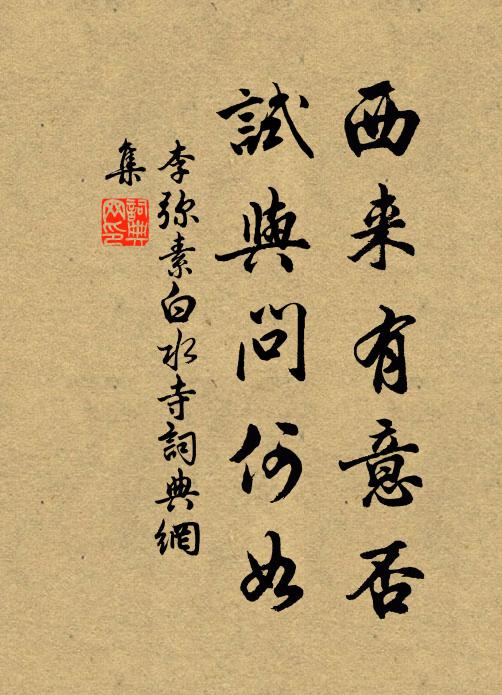 西来有意否
試與問何如
李弥素白水寺詞典網
集
詞典网印